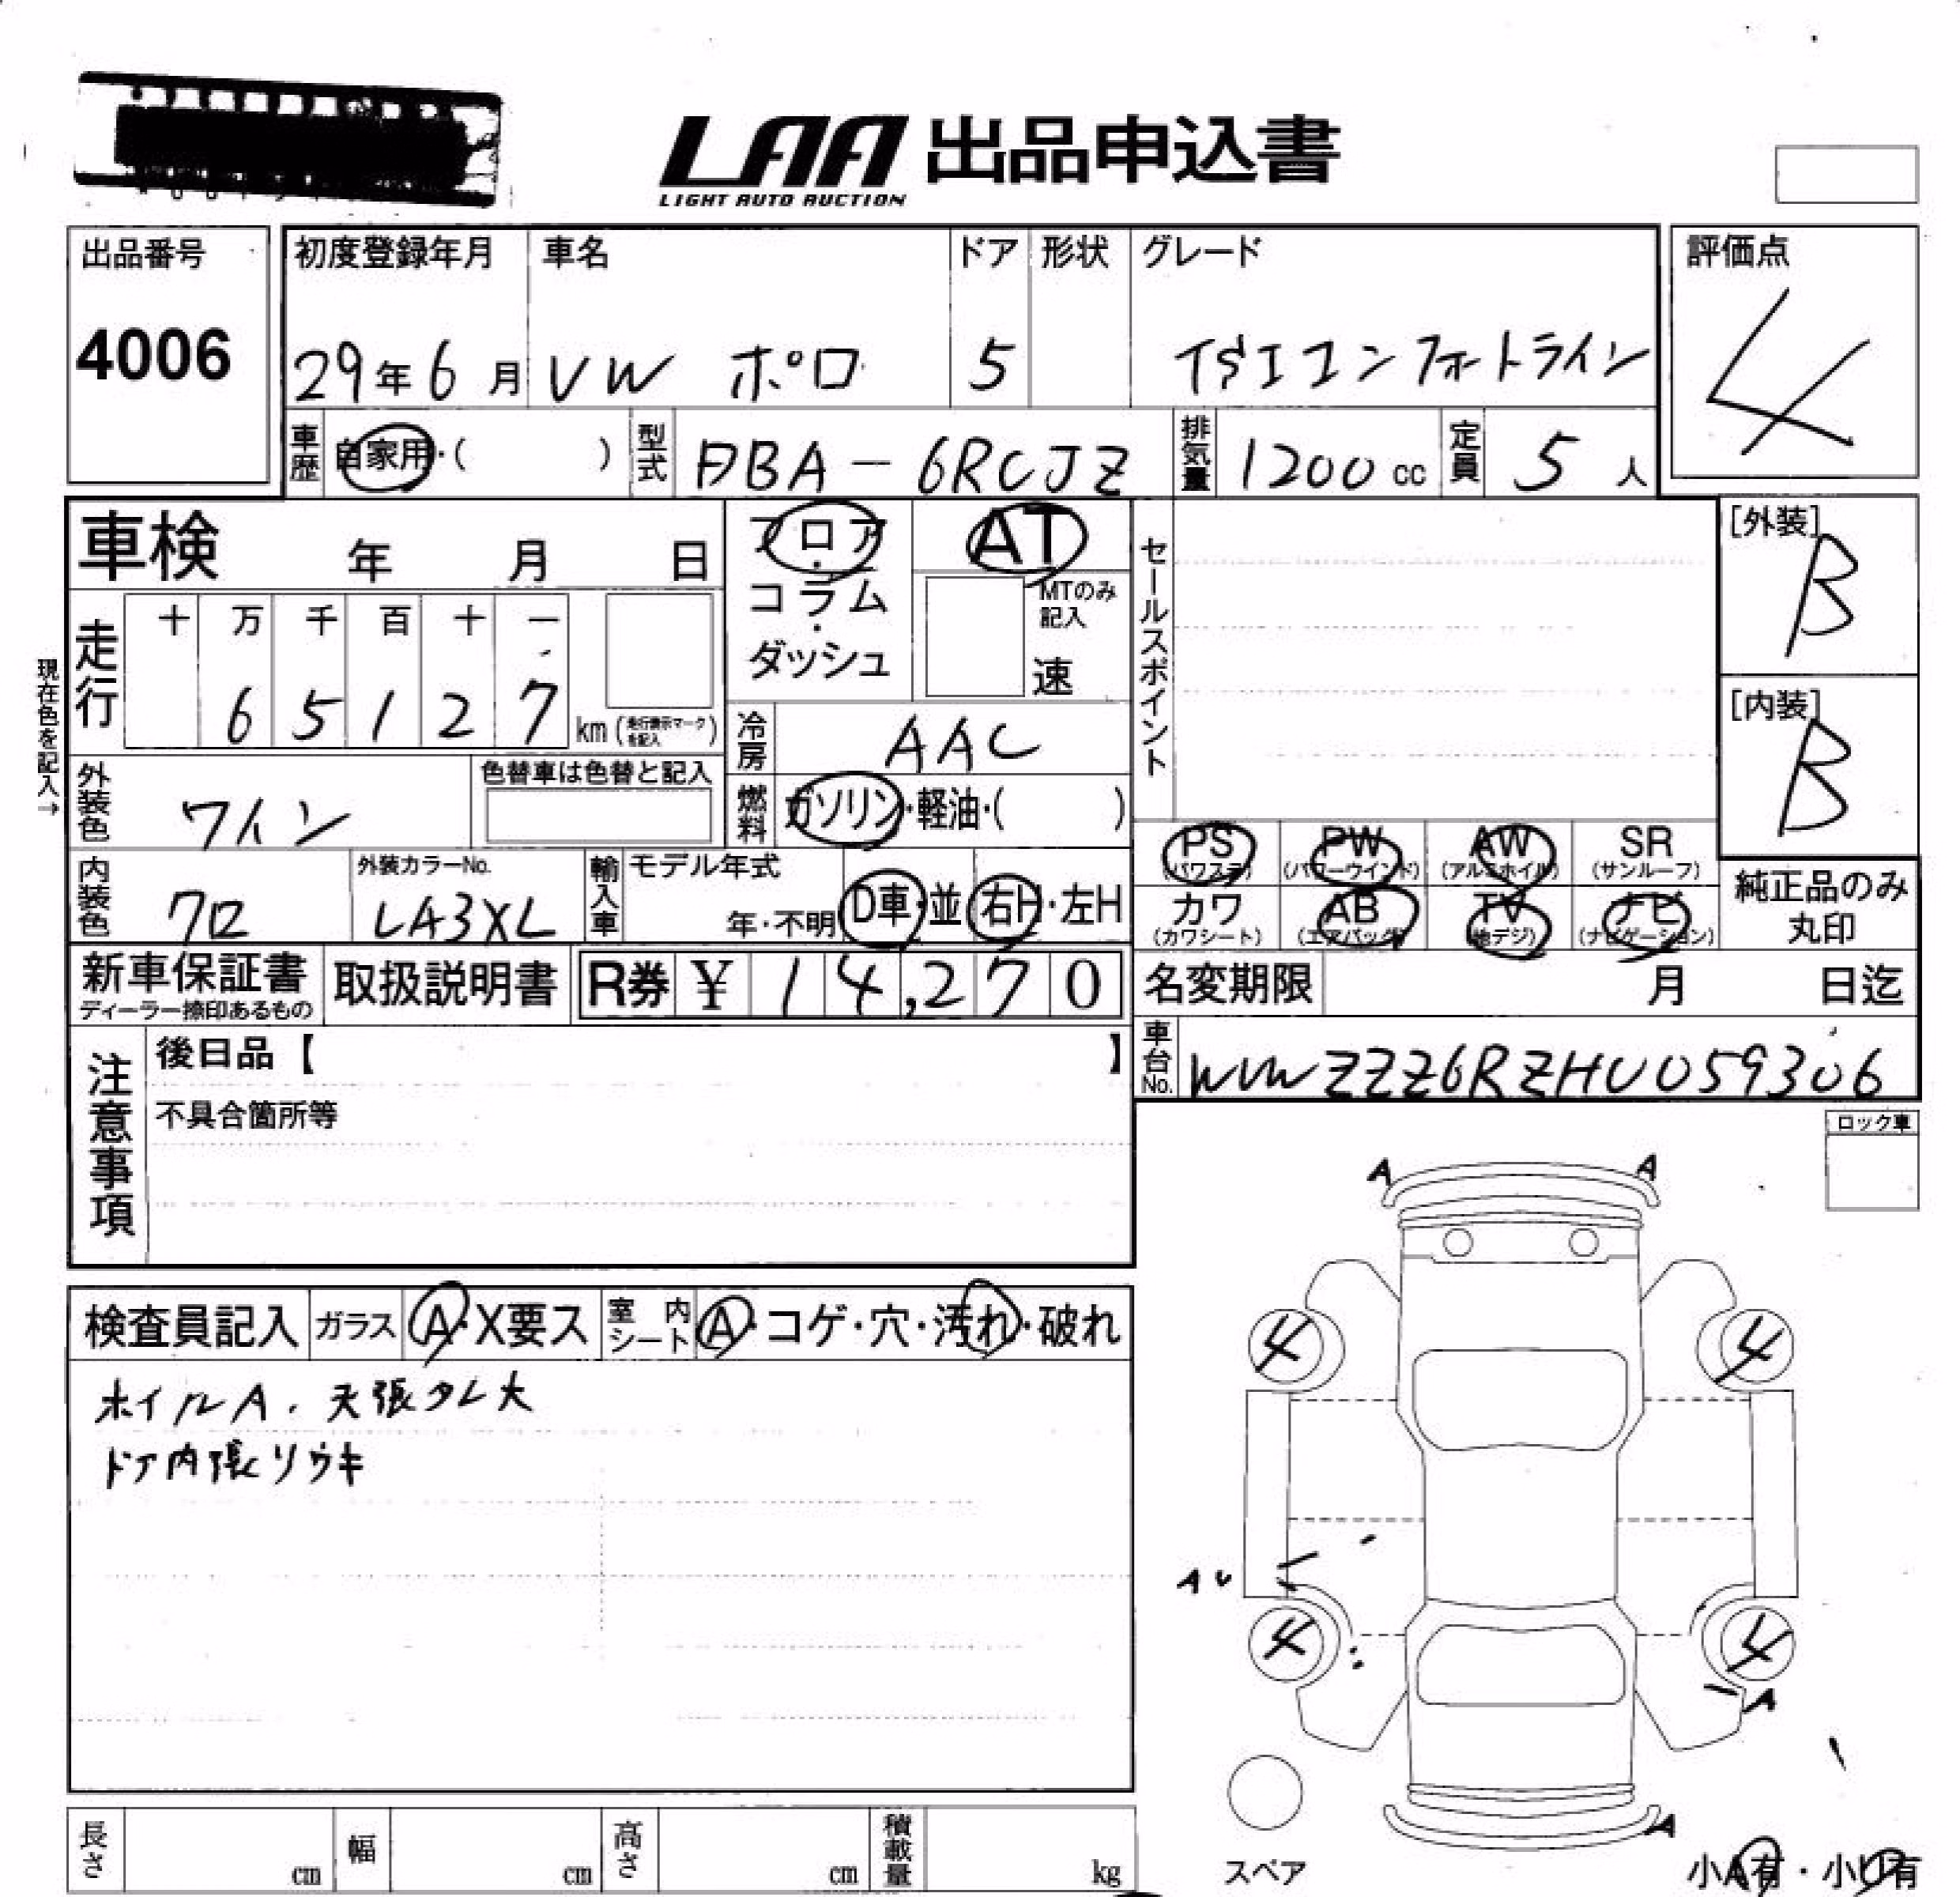 LAA 出品申込書
LIGHT AUTO AUCTION
出品番号 初度登録年月 車名 ドア 形状 グレード 評価点
4006 29年6月 VW ポロ 5 TSIコンフォートライン 4
車歴 自家用・( ) 型式 DBA-6RCJZ 排気量 1200cc 定員 5人
車検 年 月 日
フロア・コラム・ダッシュ
AT
MTのみ記入
速
セールスポイント
[外装] B
[内装] B
現在色を記入→
走行 十 万 千 百 十 一
6 5 1 2 7 km(走行表示マークを記入)
冷房 AAC
外装色 ワイン 色替車は色替と記入
燃料 ガソリン・軽油・( )
PS(パワステ) PW(パワーウインド) AW(アルミホイル) SR(サンルーフ)
カワ(カワシート) AB(エアバッグ) TV(地デジ) ナビ(ナビゲーション)
純正品のみ丸印
内装色 クロ 外装カラーNo. LA3XL 輸入車 モデル年式 年・不明 D車・並 右H・左H
新車保証書 ディーラー捺印あるもの 取扱説明書 R券 ¥ 14,270
名変期限 月 日迄
車台No. WVWZZZ6RZHU059306
注意事項
後日品【 】
不具合箇所等
ロック車
A A
検査員記入 ガラス A・X要ス 室内シート A・コゲ・穴・汚れ・破れ
ホイルA. 天張タレ大
ドア内張リウキ
4 4
AU
4 4
A
A
スペア
小A有・小U有
長さ cm 幅 cm 高さ cm 積載量 kg